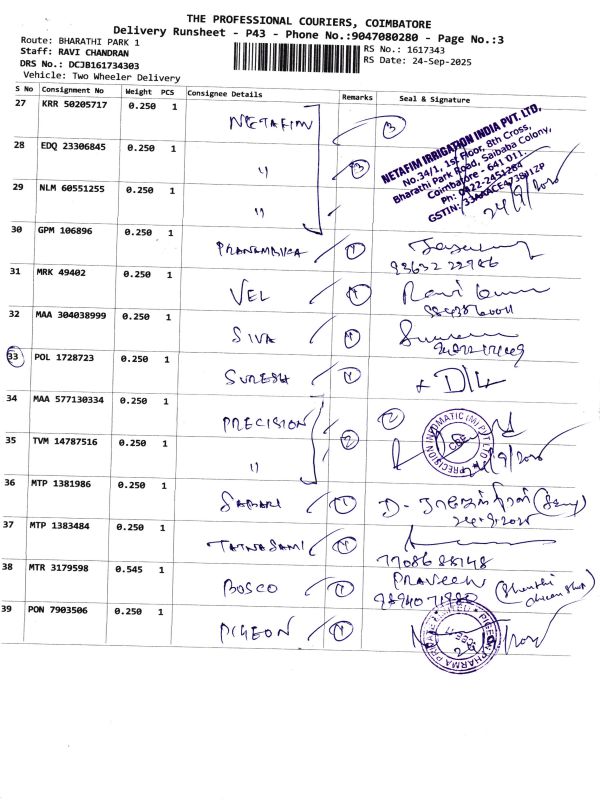 THE PROFESSIONAL COURIERS, COIMBATORE
Delivery Runsheet - P43 - Phone No.:9047080280 - Page No.:3
Route: BHARATHI PARK 1
RS No.: 1617343
Staff: RAVI CHANDRAN
RS Date: 24-Sep-2025
DRS No.: DCJB161734303
Vehicle: Two Wheeler Delivery
S No Consignment No Weight PCS Consignee Details Remarks Seal & Signature
27 KRR 50205717 0.250 1 NETAFIM 3
NETAFIM IRRIGATION INDIA PVT. LTD,
No.34/1, 1st Floor, 8th Cross,
Bharathi Park Road, Saibaba Colony,
Coimbatore - 641 011.
Ph: 0422-2451284
28 EDQ 23306845 0.250 1 " 3
29 NLM 60551255 0.250 1 "
30 GPM 106896 0.250 1 1
93632 22786
31 MRK 49402 0.250 1 VEL 1
32 MAA 304038999 0.250 1 SIVA 1
33 POL 1728723 0.250 1 SURESH 1
34 MAA 577130334 0.250 1 PRECISION 2
PRECISION INFOMATIC (M) PVT LTD
CBE
35 TVM 14787516 0.250 1 " 2
36 MTP 1381986 0.250 1 1
37 MTP 1383484 0.250 1 1
77086 88148
38 MTR 3179598 0.545 1 BOSCO 1 PRAVEEN
9894071980
39 PON 7903506 0.250 1 PIGEON 1